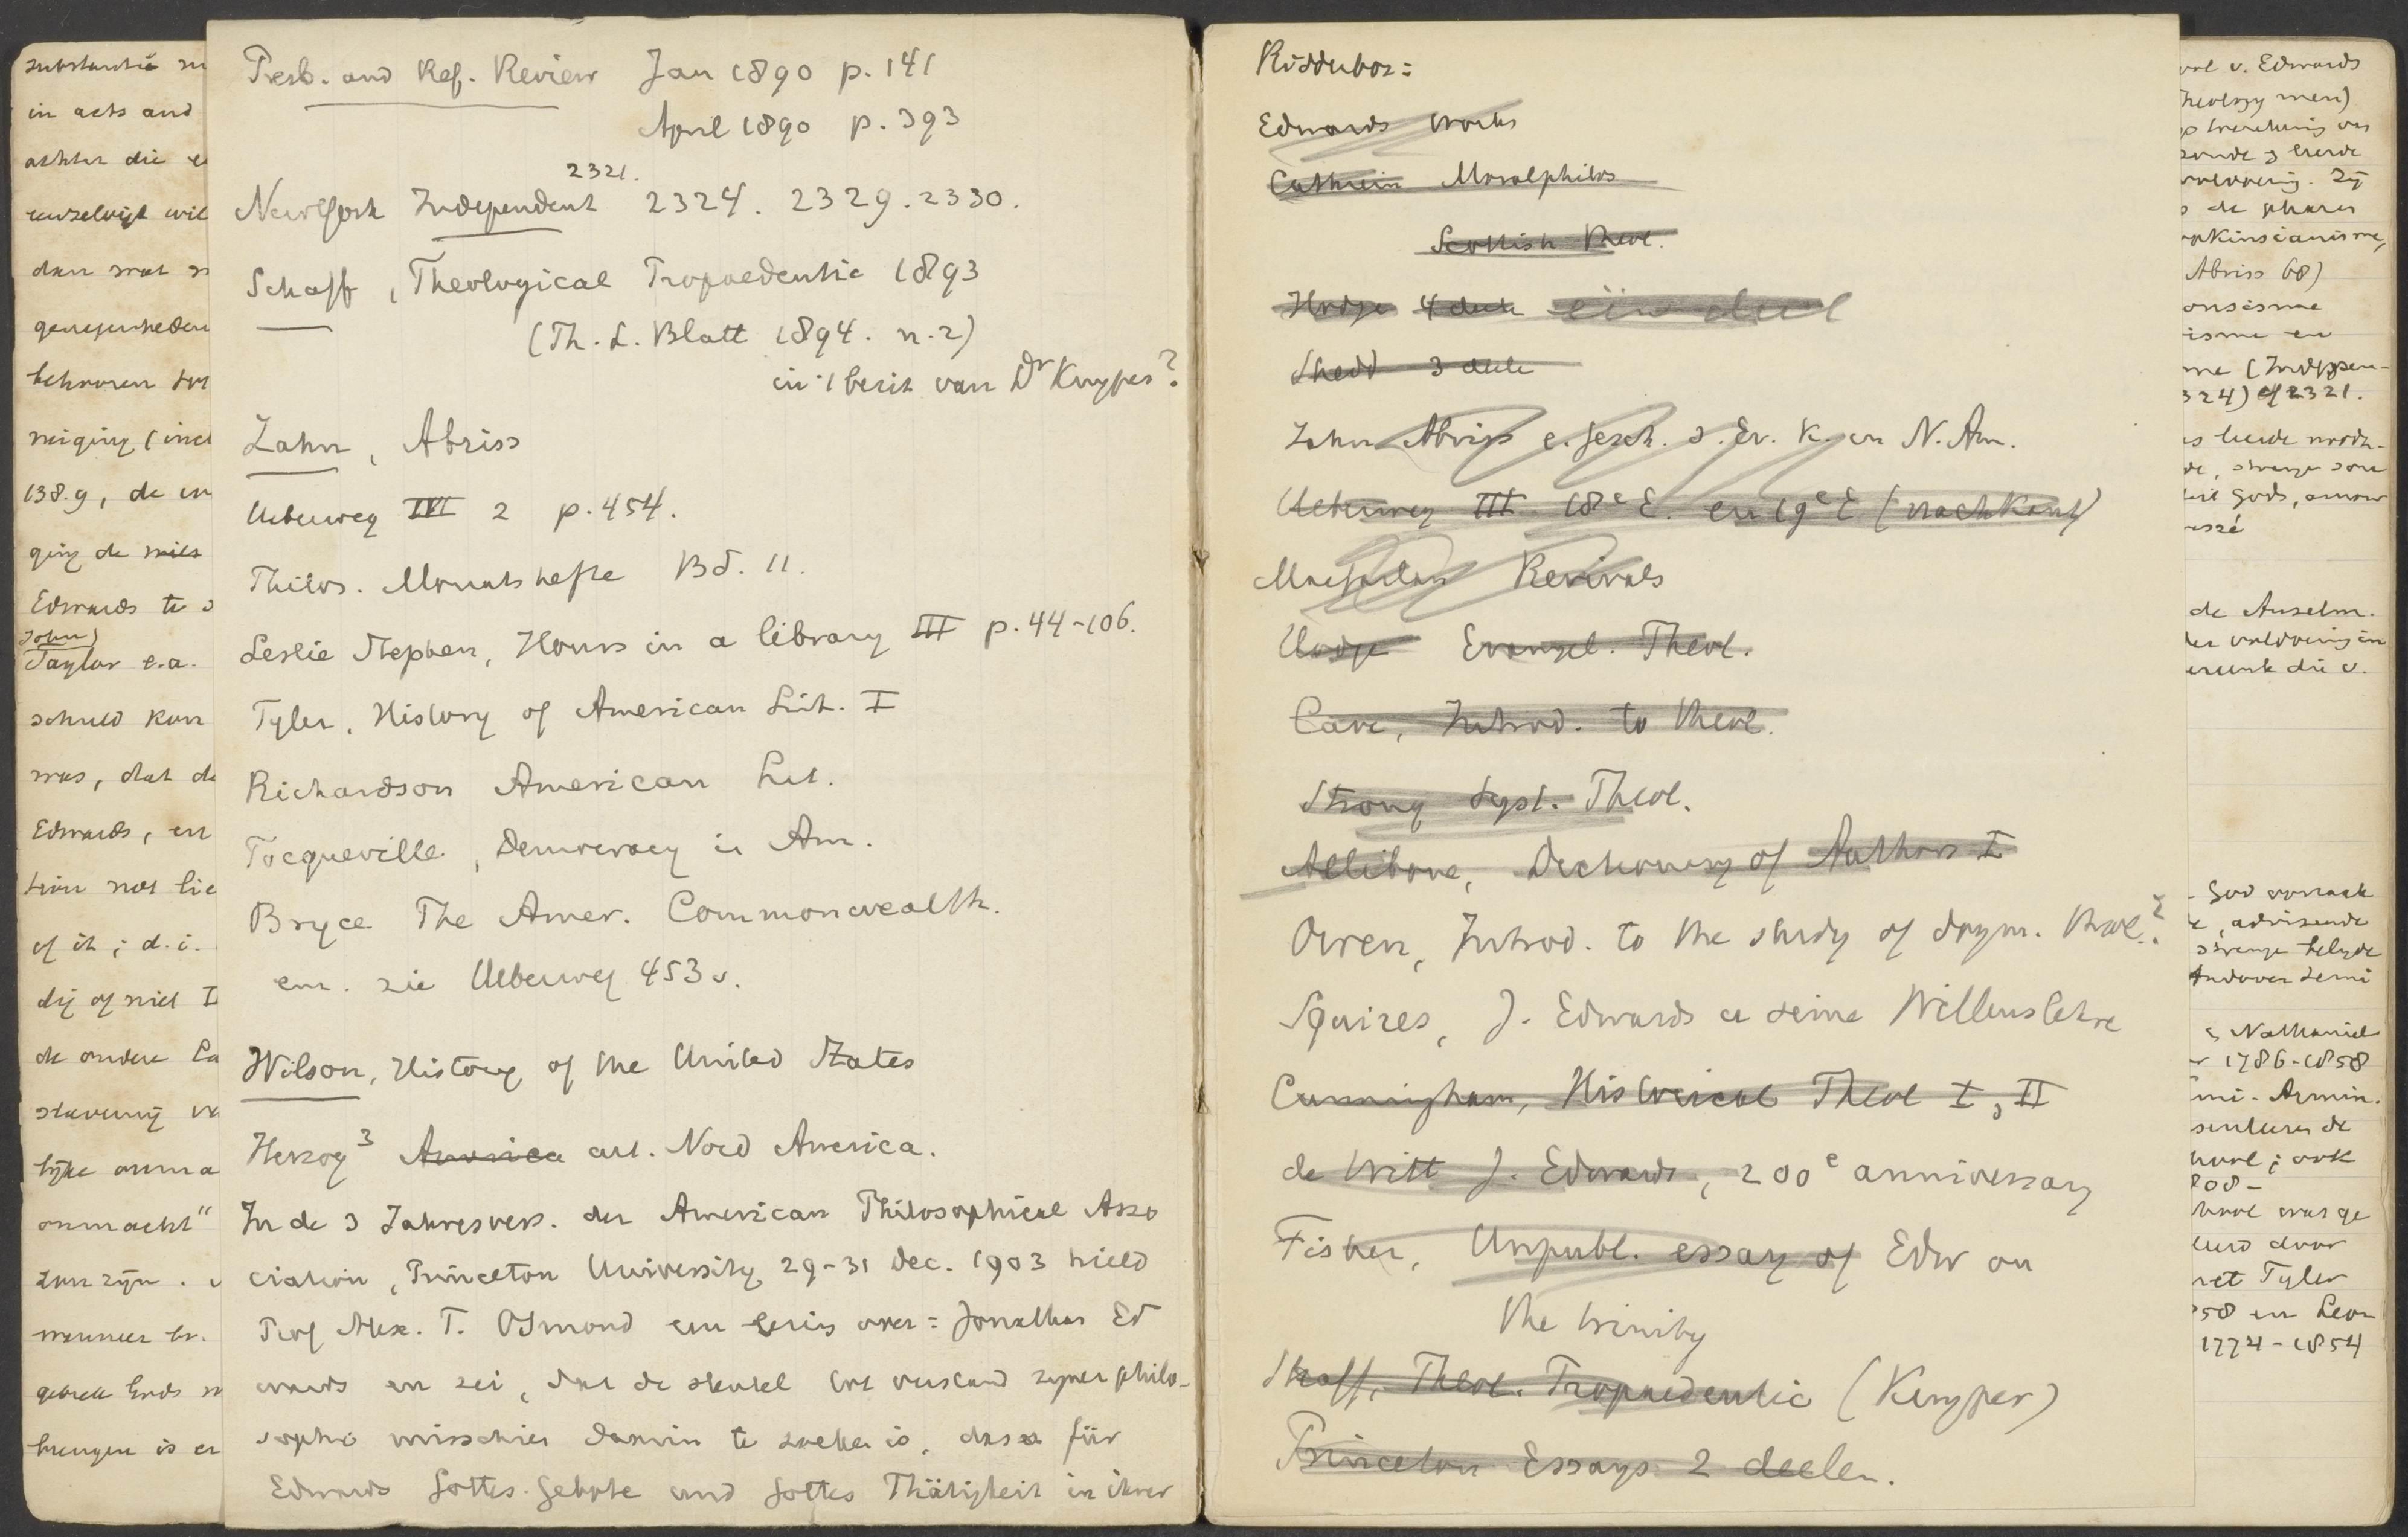 substantie
in acts and
achter die
dan wat
behooren
neiging (incl
138.9, de
ging de
Edwards te
John)
Taylor e.a.
schuld kan
was, dat de
Edwards, en
tion not lie
of it ; d.i.
dij of niet I
de andere
onmacht"
zou zijn.
wanneer
brengen is er
Presb. and Ref. Review Jan 1890 p. 141
April 1890 p. 393
2321.
New York Independent 2324. 2329. 2330.
Schaff, Theological Propaedeutic 1893
(Th. L. Blatt 1894. n. 2)
in 't bezit van Dr Kuyper?
Zahn, Abriss
Ueberweg III 2 p. 454.
Philos. Monatshefte Bd. 11.
Leslie Stephen, Hours in a library III p. 44-106.
Tyler, History of American Lit. I
Richardson American Lit.
Tocqueville, Democracy in Am.
Bryce The Amer. Commonwealth.
enz. zie Ueberweg 453 v.
Wilson, History of the United States
Herzog 3 America art. Nord America.
In de 3 Jahresvers. der American Philosophical Asso
ciation, Princeton University 29-31 Dec. 1903 hield
Prof Alex. T. Ormond een lezing over = Jonathan Ed
wards en zei, dat de sleutel tot verstand zijner philo-
sophie misschien daarin te zoeken is, dass für
Edwards Gottes Gebote und Gottes Thätigkeit in ihrer
Ridderbos =
Edwards works
Cathrein Moralphilos
Scottish Theol.
Hodge 4 deele één deel
Shedd 3 deele
Zahn Abriss e. Gesch. d. Ev. K. in N. Am.
Ueberweg III. 18e E. en 19e E (nachKant)
Macfarlan Revivals
Hodge Evangel. Theol.
Cave, Introd. to Theol.
Strong Syst. Theol.
Allibone, Dictionary of Authors I
Owen, Introd. to the study of dogm. theol.?
Squires, J. Edwards u seine Willenslehre
Cunningham, Historical Theol I, II
de Witt J. Edwards, 200e anniversary
Fisher, Unpubl. essay of Edw on
the trinity
Schaff, Theol. Propaedeutic (Kuyper)
Princeton Essays 2 deelen.
v. Edwards
de
Abriss 68)
isme en
324) cf 2321.
de Anselm.
God
strenge
Andover Semi
Nathaniel
1786-1858
Armin.
ook
808-
was ge
door
Tyler
58 en Leon
1774-1854